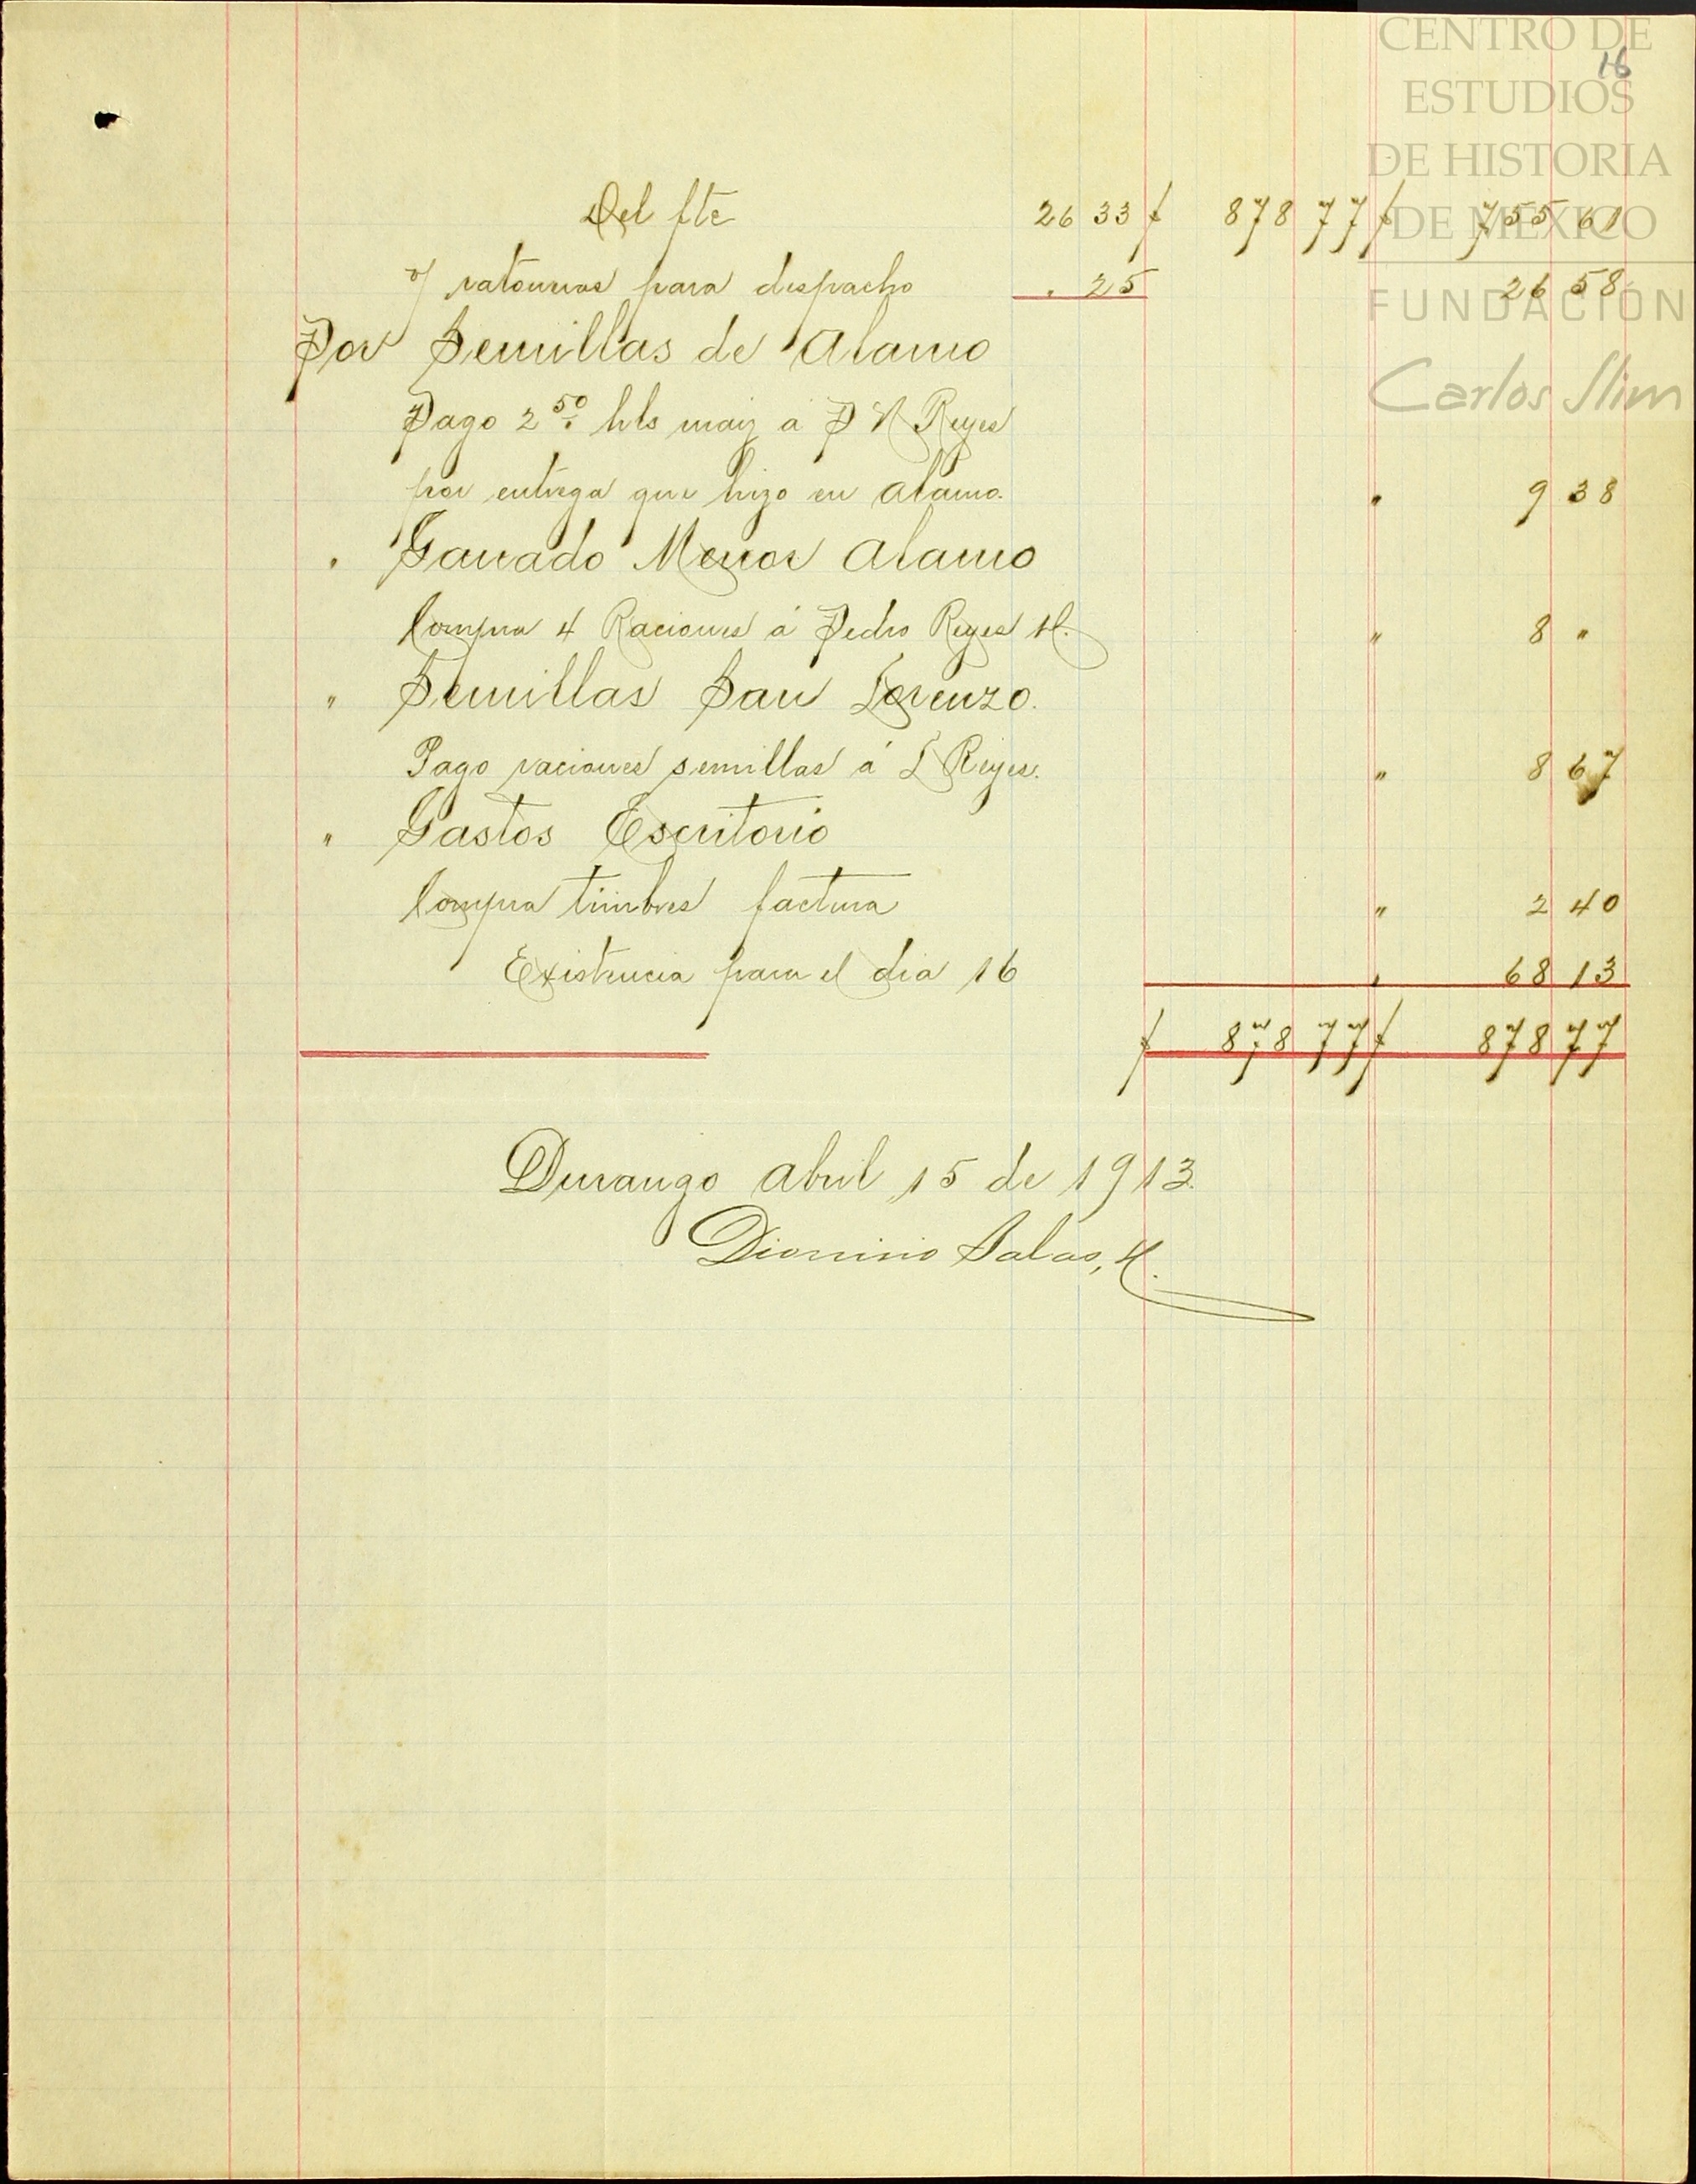 CENTRO DE
16
ESTUDIOS
DE HISTORIA
DE MÉXICO
FUNDACIÓN
Carlos Slim
Del fte 26 33 $ 878 77 $ 755 61
ratoneras para despacho . 25 26 58
Por Semillas de Alamo
Pago 2 50 hls maiz a P Reyes
por entrega que hizo en Alamo. " 9 38
" Ganado Menor Alamo
Compra 4 Raciones á Pedro Reyes H. " 8 "
" Semillas San Lorenzo.
Pago raciones semillas á L Reyes. " 8 67
" Gastos Escritorio
Compra timbres factura " 2 40
Existencia para el dia 16 " 68 13
$ 878 77 $ 878 77
Durango Abril 15 de 1913.
Dionisio Salas, H.